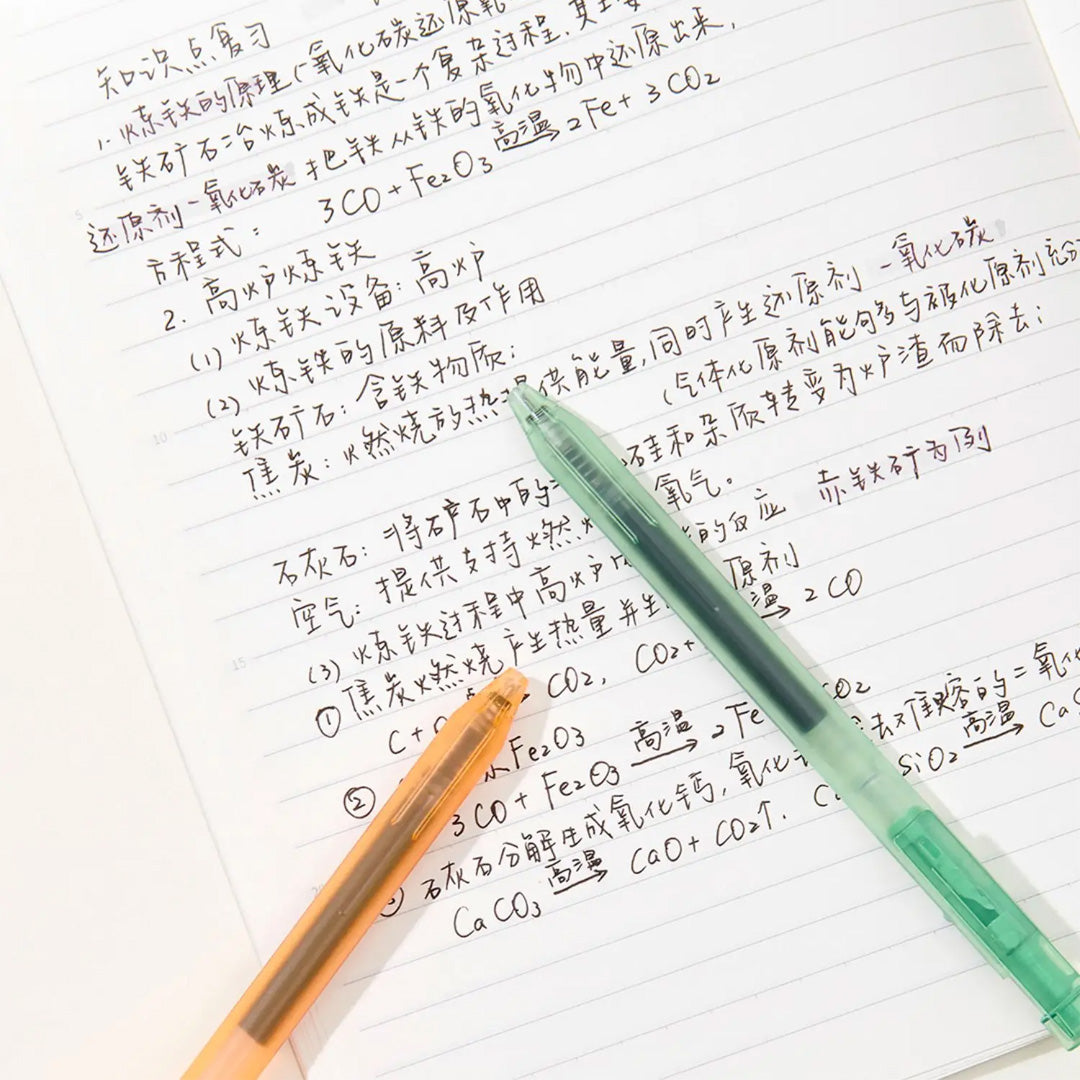 知识点复习
1. 炼铁的原理(一氧化碳还原氧
铁矿石冶炼成铁是一个复杂过程,其主要
还原剂一氧化碳把铁从铁的氧化物中还原出来,
方程式: 3CO + Fe₂O₃ 高温→ 2Fe + 3CO₂
2. 高炉炼铁
(1) 炼铁设备:高炉
(2) 炼铁的原料及作用
铁矿石:含铁物质;
焦炭:燃烧的热提供能量,同时产生还原剂一氧化碳,
(气体化原剂能够多与被化原剂充分
石灰石:将矿石中的二 硅和杂质转变为炉渣而除去;
空气:提供支持燃烧 氧气。
(3) 炼铁过程中高炉内 的反应 赤铁矿为例
① 焦炭燃烧产生热量并生 原剂
C + O → CO₂, CO₂+ 温→ 2CO
② Fe₂O₃
3CO + Fe₂O₃ 高温→ 2Fe CO₂
石灰石分解生成氧化钙,氧化 去难熔的二氧化
CaCO₃ 高温→ CaO + CO₂↑. Ca SiO₂ 高温→ CaS
5
10
15